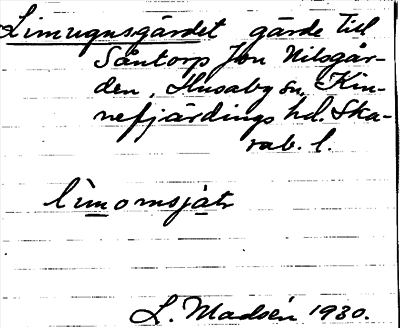 Limugnsgärdet gärde till
Såntorp Jon Nilsgår-
den, Husaby sn, Kin-
nefjärdings hd. Ska-
rab. l.
lìmomsjàtr
L. Madsén 1930.